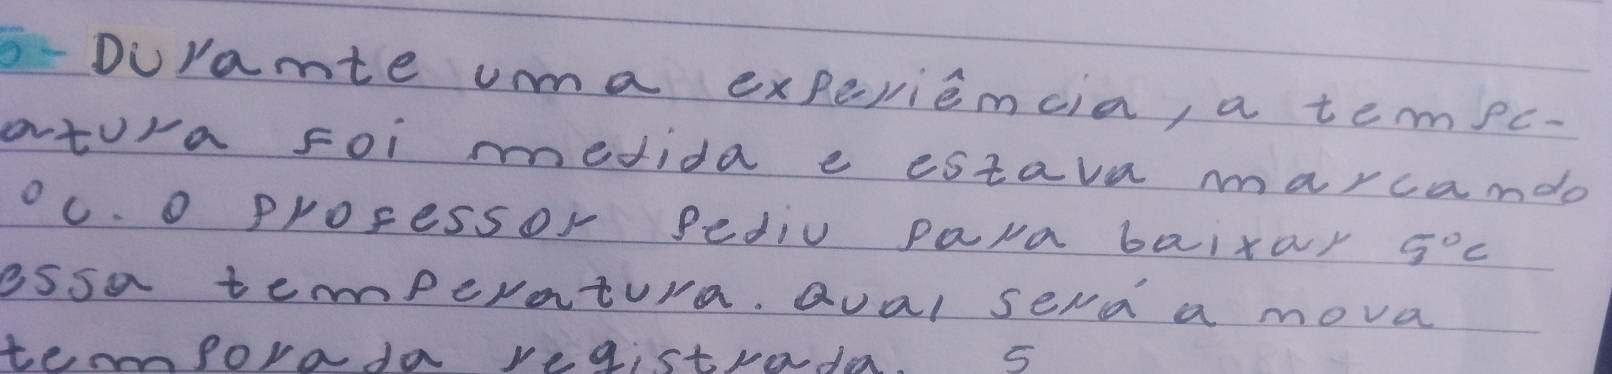 Durante uma experiência, a tempe-
atura foi medida e estava marcando
°C. O professor pediu para baixar 5°C
essa temperatura. Qual será a nova
temporada registrada. 5